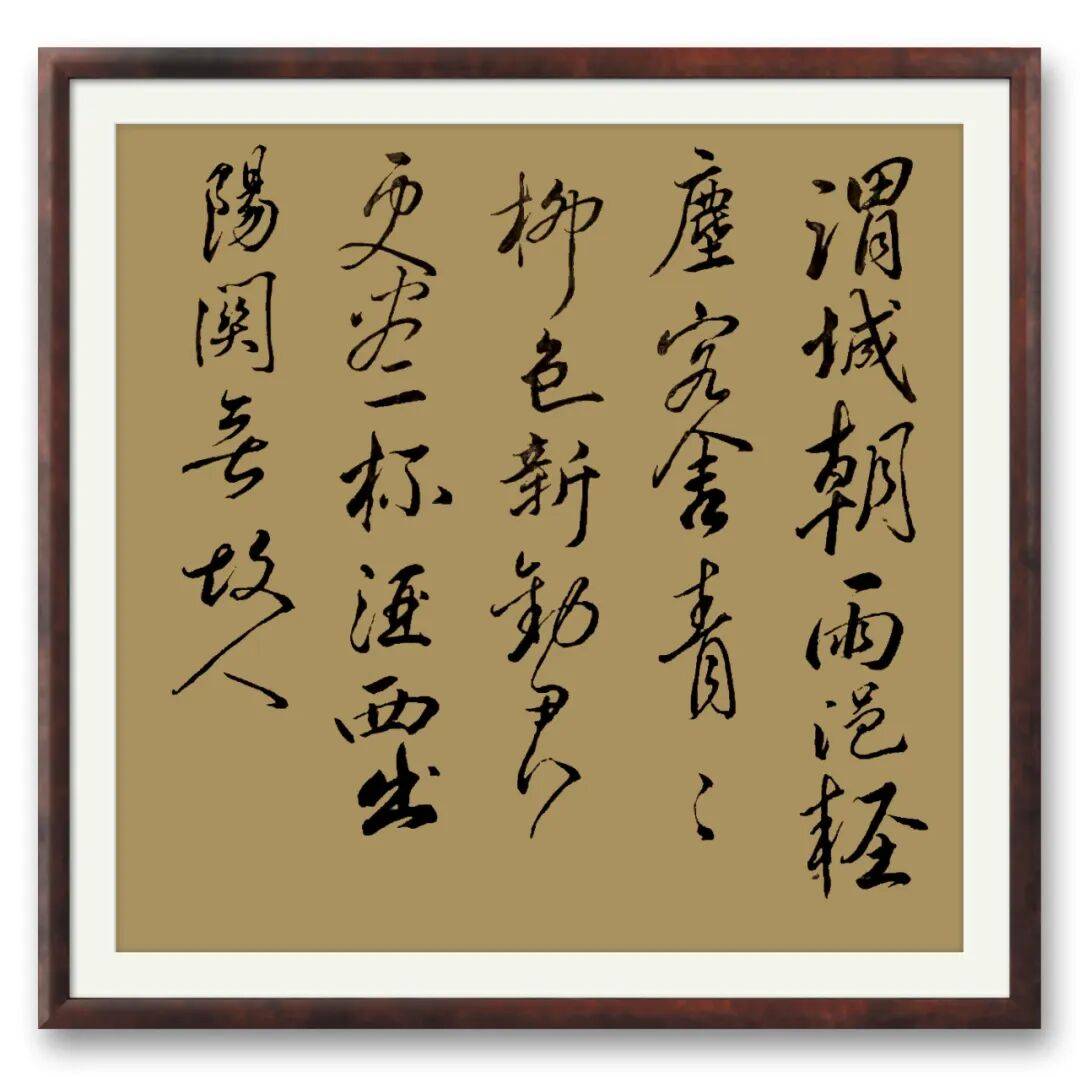 渭城朝雨浥輕
塵客舍青々
柳色新勸君
更盡一杯酒西出
陽關無故人